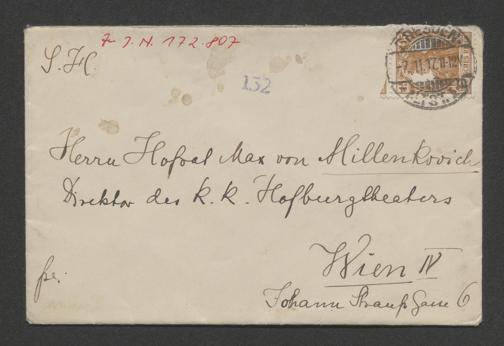 Z J. N. 172.807
S. H.
132
DRESDEN
Herrn Hofrat Max von Millenkovich
Direktor des k. k. Hofburgtheaters
Wien IV
fr.
Johann Strauß Gasse 6